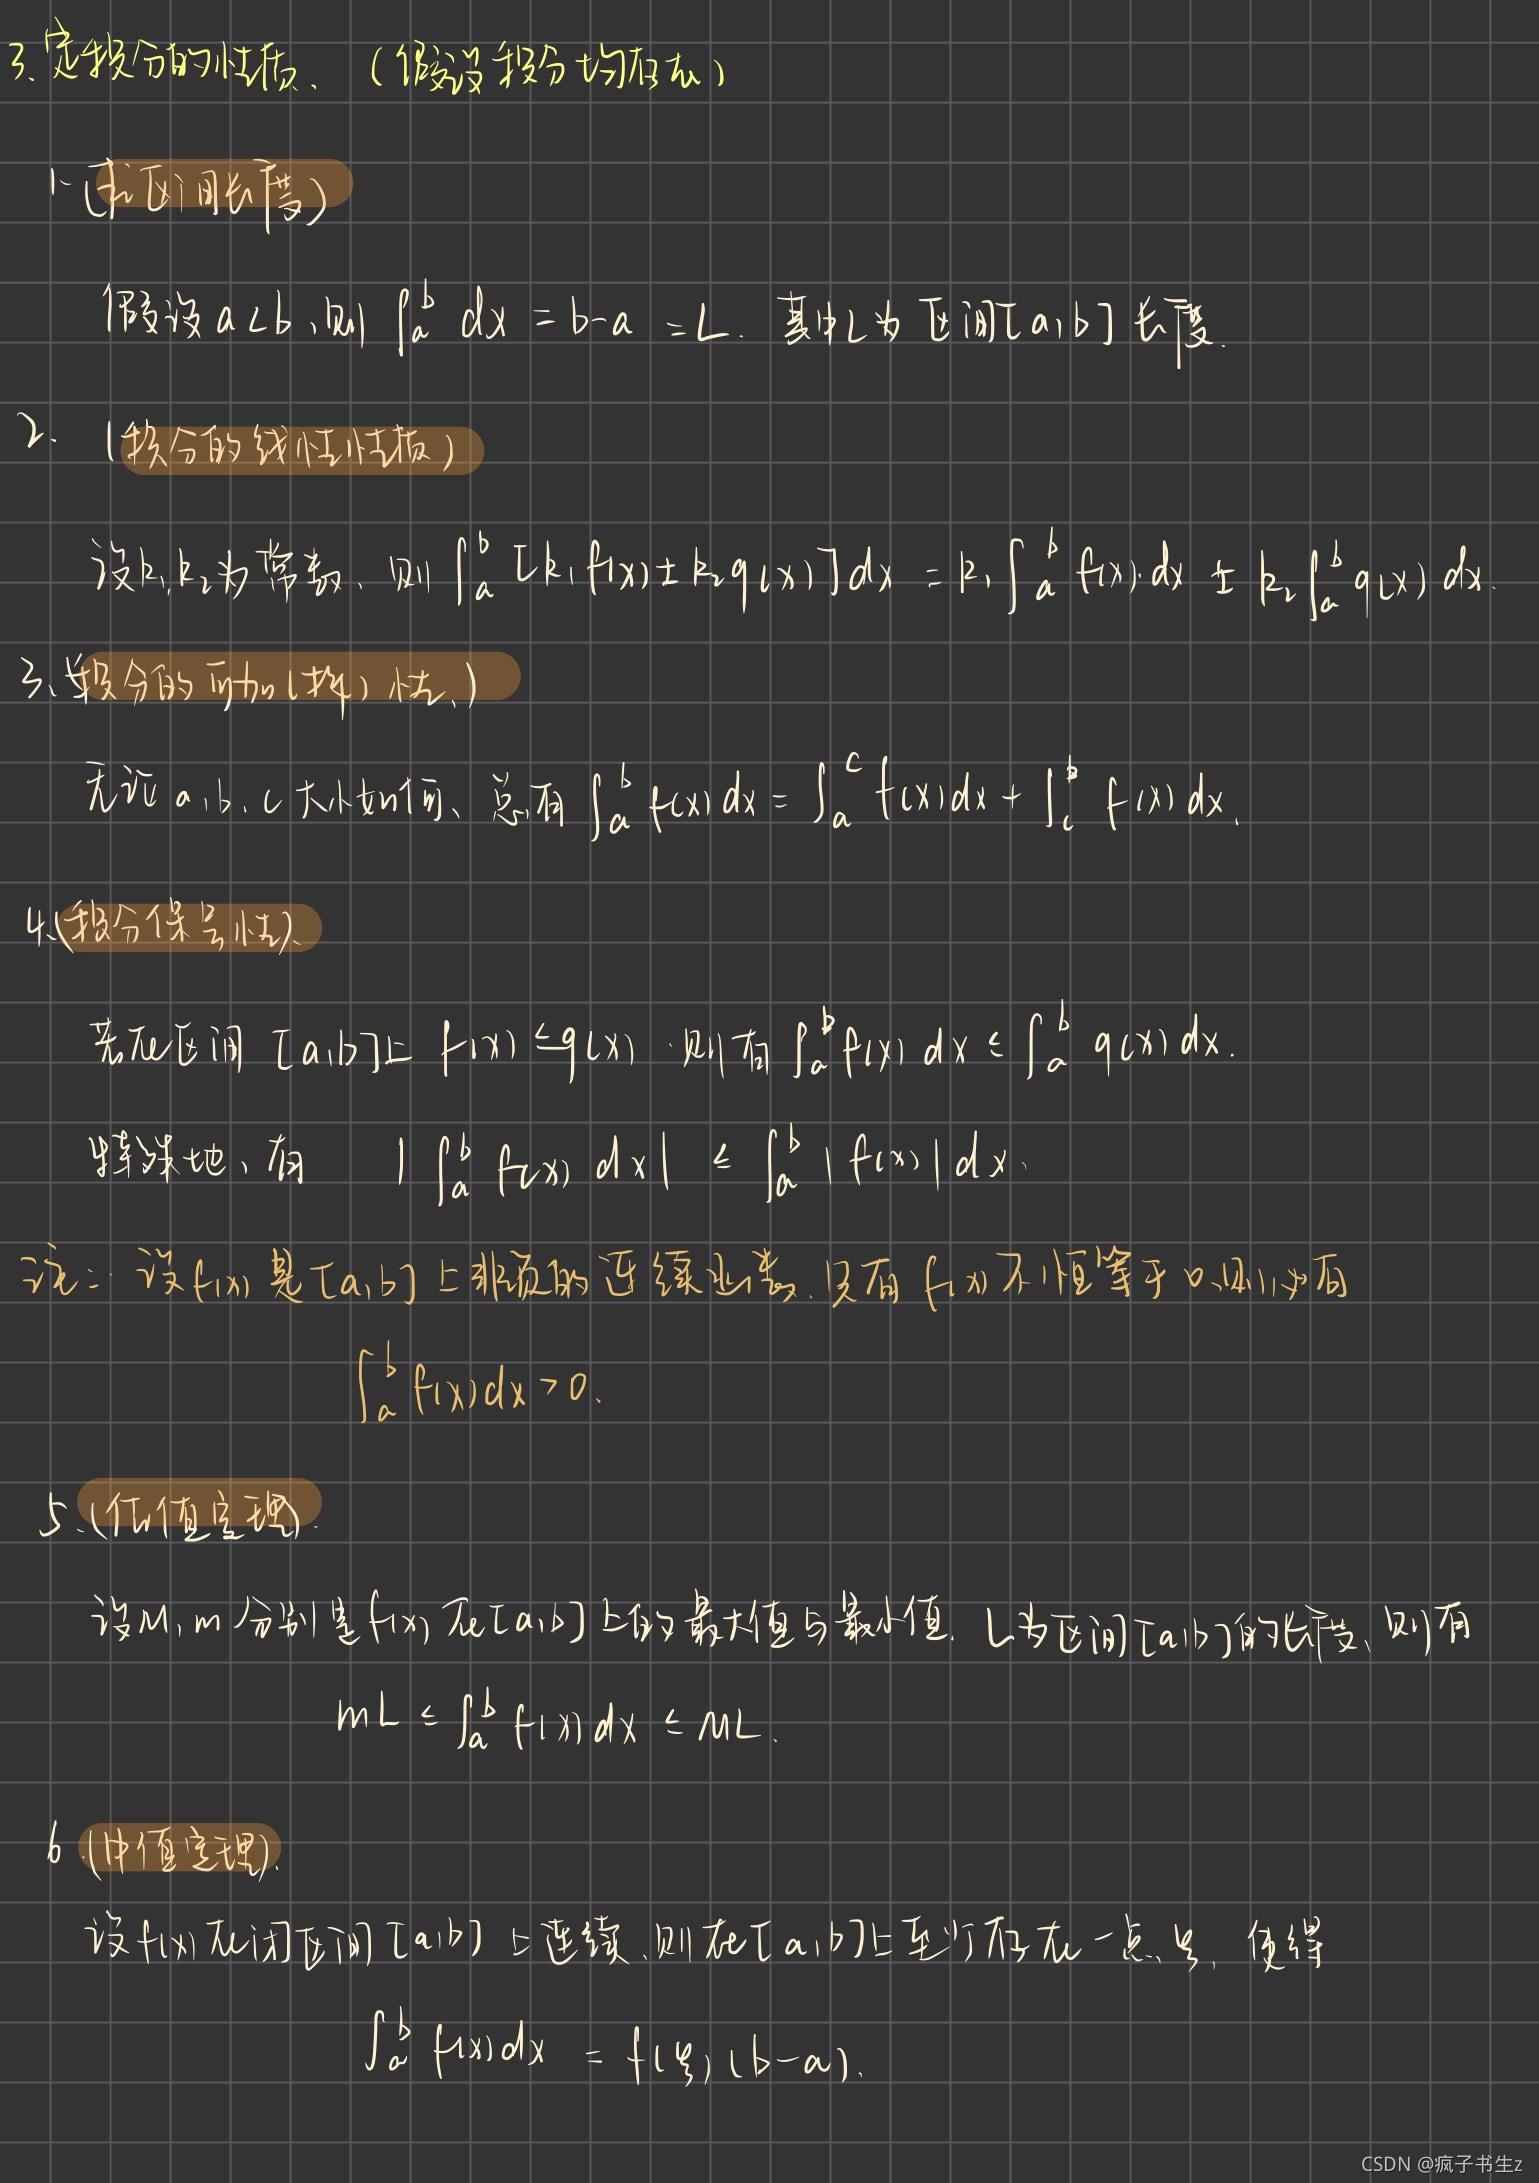 3. 定积分的性质.（假设积分均存在）
1. (求区间长度)
假设a<b,则 ∫_a^b dx = b-a = L. 其中L为区间[a,b]长度.
2. (积分的线性性质)
设k₁,k₂为常数,则 ∫_a^b [k₁f(x)±k₂g(x)]dx = k₁∫_a^b f(x)·dx ± k₂∫_a^b g(x)dx.
3. (积分的可加(拆)性.)
无论a,b,c大小如何、总有 ∫_a^b f(x)dx = ∫_a^c f(x)dx + ∫_c^b f(x)dx.
4. (积分保号性).
若在区间[a,b]上 f(x)≤g(x).则有 ∫_a^b f(x)dx ≤ ∫_a^b g(x)dx.
特殊地、有 |∫_a^b f(x)dx| ≤ ∫_a^b |f(x)|dx.
注: 设f(x)是[a,b]上非负的连续函数.只有f(x)不恒等于0,则必有
∫_a^b f(x)dx > 0.
5. (估值定理).
设M,m分别是f(x)在[a,b]上的最大值与最小值. L为区间[a,b]的长度、则有
mL ≤ ∫_a^b f(x)dx ≤ ML.
6. (中值定理).
设f(x)在闭区间[a,b]上连续.则在[a,b]上至少存在一点ξ, 使得
∫_a^b f(x)dx = f(ξ)(b-a).
CSDN @疯子书生z